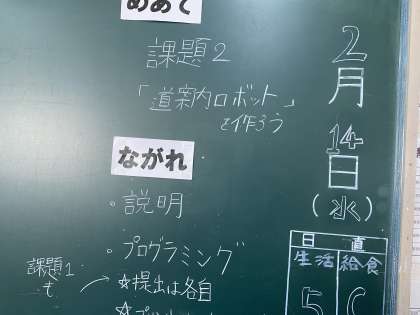 めあて
課題2
「道案内ロボット」
を作ろう
ながれ
・説明
・プログラミング
課題1
も
☆提出は各自
2
月
14
日
(水)
日 直
生活 給食
5